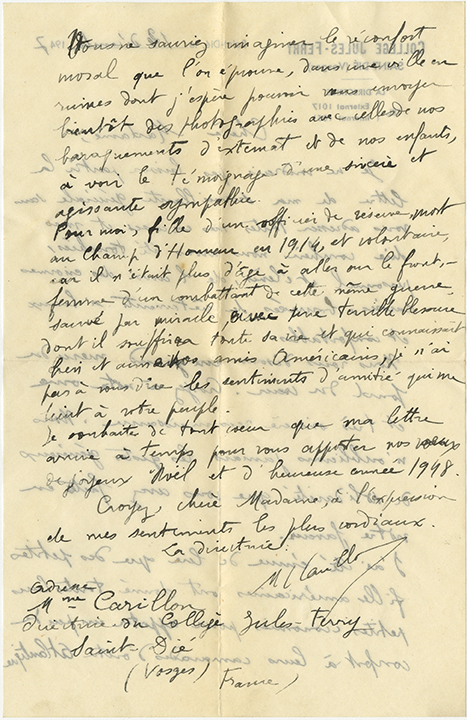 Vous ne sauriez imaginer le réconfort
moral que l'on éprouve, dans une ville en
ruines dont j'espère pouvoir vous envoyer
bientôt des photographies avec celles de nos
baraquements d'externat et de nos enfants,
à voir le témoignage d'une sincère et
agissante sympathie.
Pour moi, fille d'un officier de réserve, mort
au Champ d'Honneur en 1914, et volontaire,
car il n'était plus d'âge à aller sur le front, -
femme d'un combattant de cette même guerre
sauvé par miracle, avec une terrible blessure
dont il souffrira toute sa vie et qui connaissait
bien et aima nos amis Américains, je n'ai
pas à vous dire les sentiments d'amitié qui me
lient à votre peuple.
Je souhaite de tout coeur que ma lettre
arrive à temps pour vous apporter nos voeux
de joyeux Noël et d'heureuse année 1948.
Croyez, chère Madame, à l'expression
de mes sentiments les plus cordiaux.
La directrice.
adresse
Mme Carillon
Directrice du Collège Jules-Ferry
Saint-Dié
(Vosges) France)